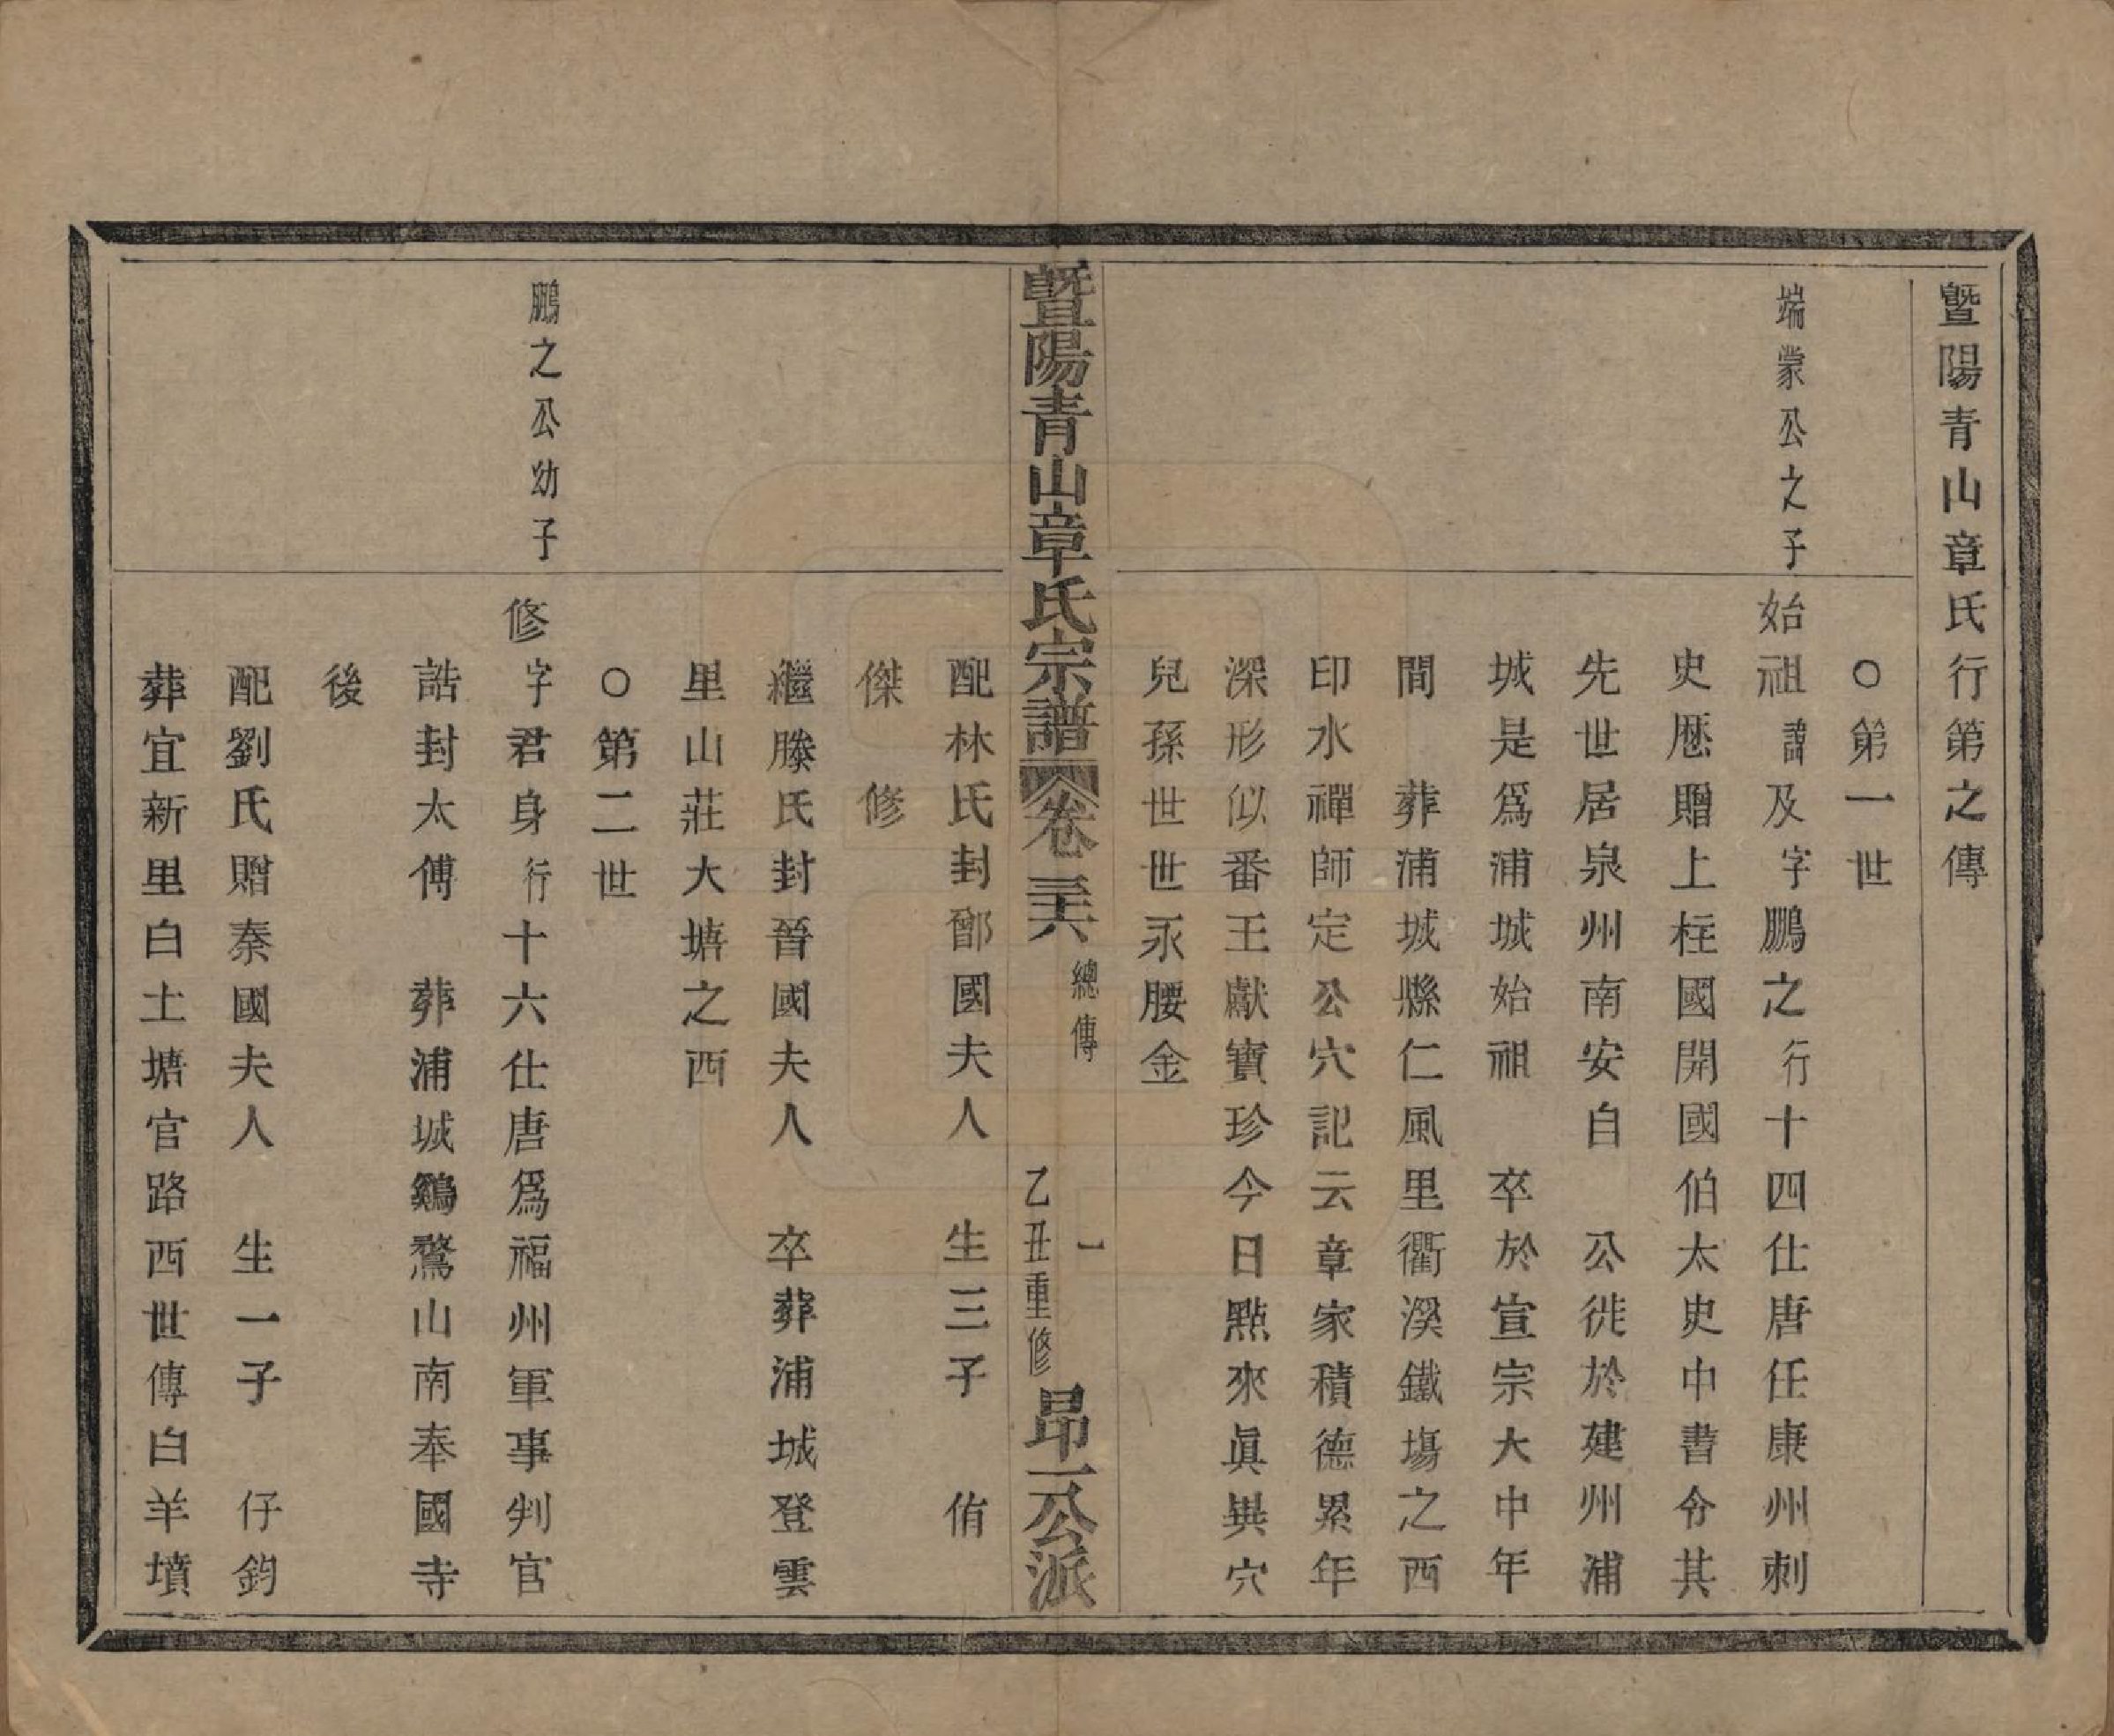 暨陽青山章氏行第之傳
○第一世
端蒙公之子
始祖諱及字鵬之行十四仕唐任康州刺
史歷贈上柱國開國伯太史中書令其
先世居泉州南安自 公徙於建州浦
城是爲浦城始祖 卒於宣宗大中年
間 葬浦城縣仁風里衢溪鐵場之西
印水禪師定公穴記云章家積德累年
深形似番王獻寶珍今日點來眞異穴
兒孫世世永腰金
暨陽青山章氏宗譜 卷三六 總傳 一 乙丑重修 昂一公派
配林氏封鄫國夫人 生三子 侑
傑 修
繼滕氏封晉國夫人 卒葬浦城登雲
里山莊大塘之西
○第二世
鵬之公幼子
修字君身行十六仕唐爲福州軍事判官
誥封太傅 葬浦城鷄鶩山南奉國寺
後
配劉氏贈秦國夫人 生一子 仔鈞
葬宜新里白土塘官路西世傳白羊墳